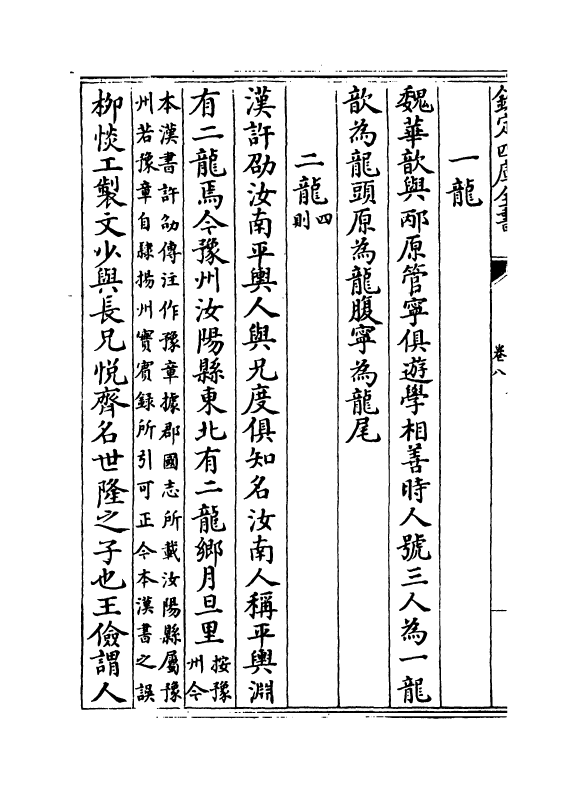 欽定四庫全書
卷八
一龍
魏華歆與邴原管寧俱遊學相善時人號三人為一龍
歆為龍頭原為龍腹寧為龍尾
二龍四則
漢許劭汝南平輿人與兄度俱知名汝南人稱平輿淵
有二龍焉今豫州汝陽縣東北有二龍鄉月旦里按豫州今
本漢書許劭傳注作豫章據郡國志所載汝陽縣屬豫
州若豫章自隸揚州實賓録所引可正今本漢書之誤
栁惔工製文少與長兄悅齊名世隆之子也王儉謂人